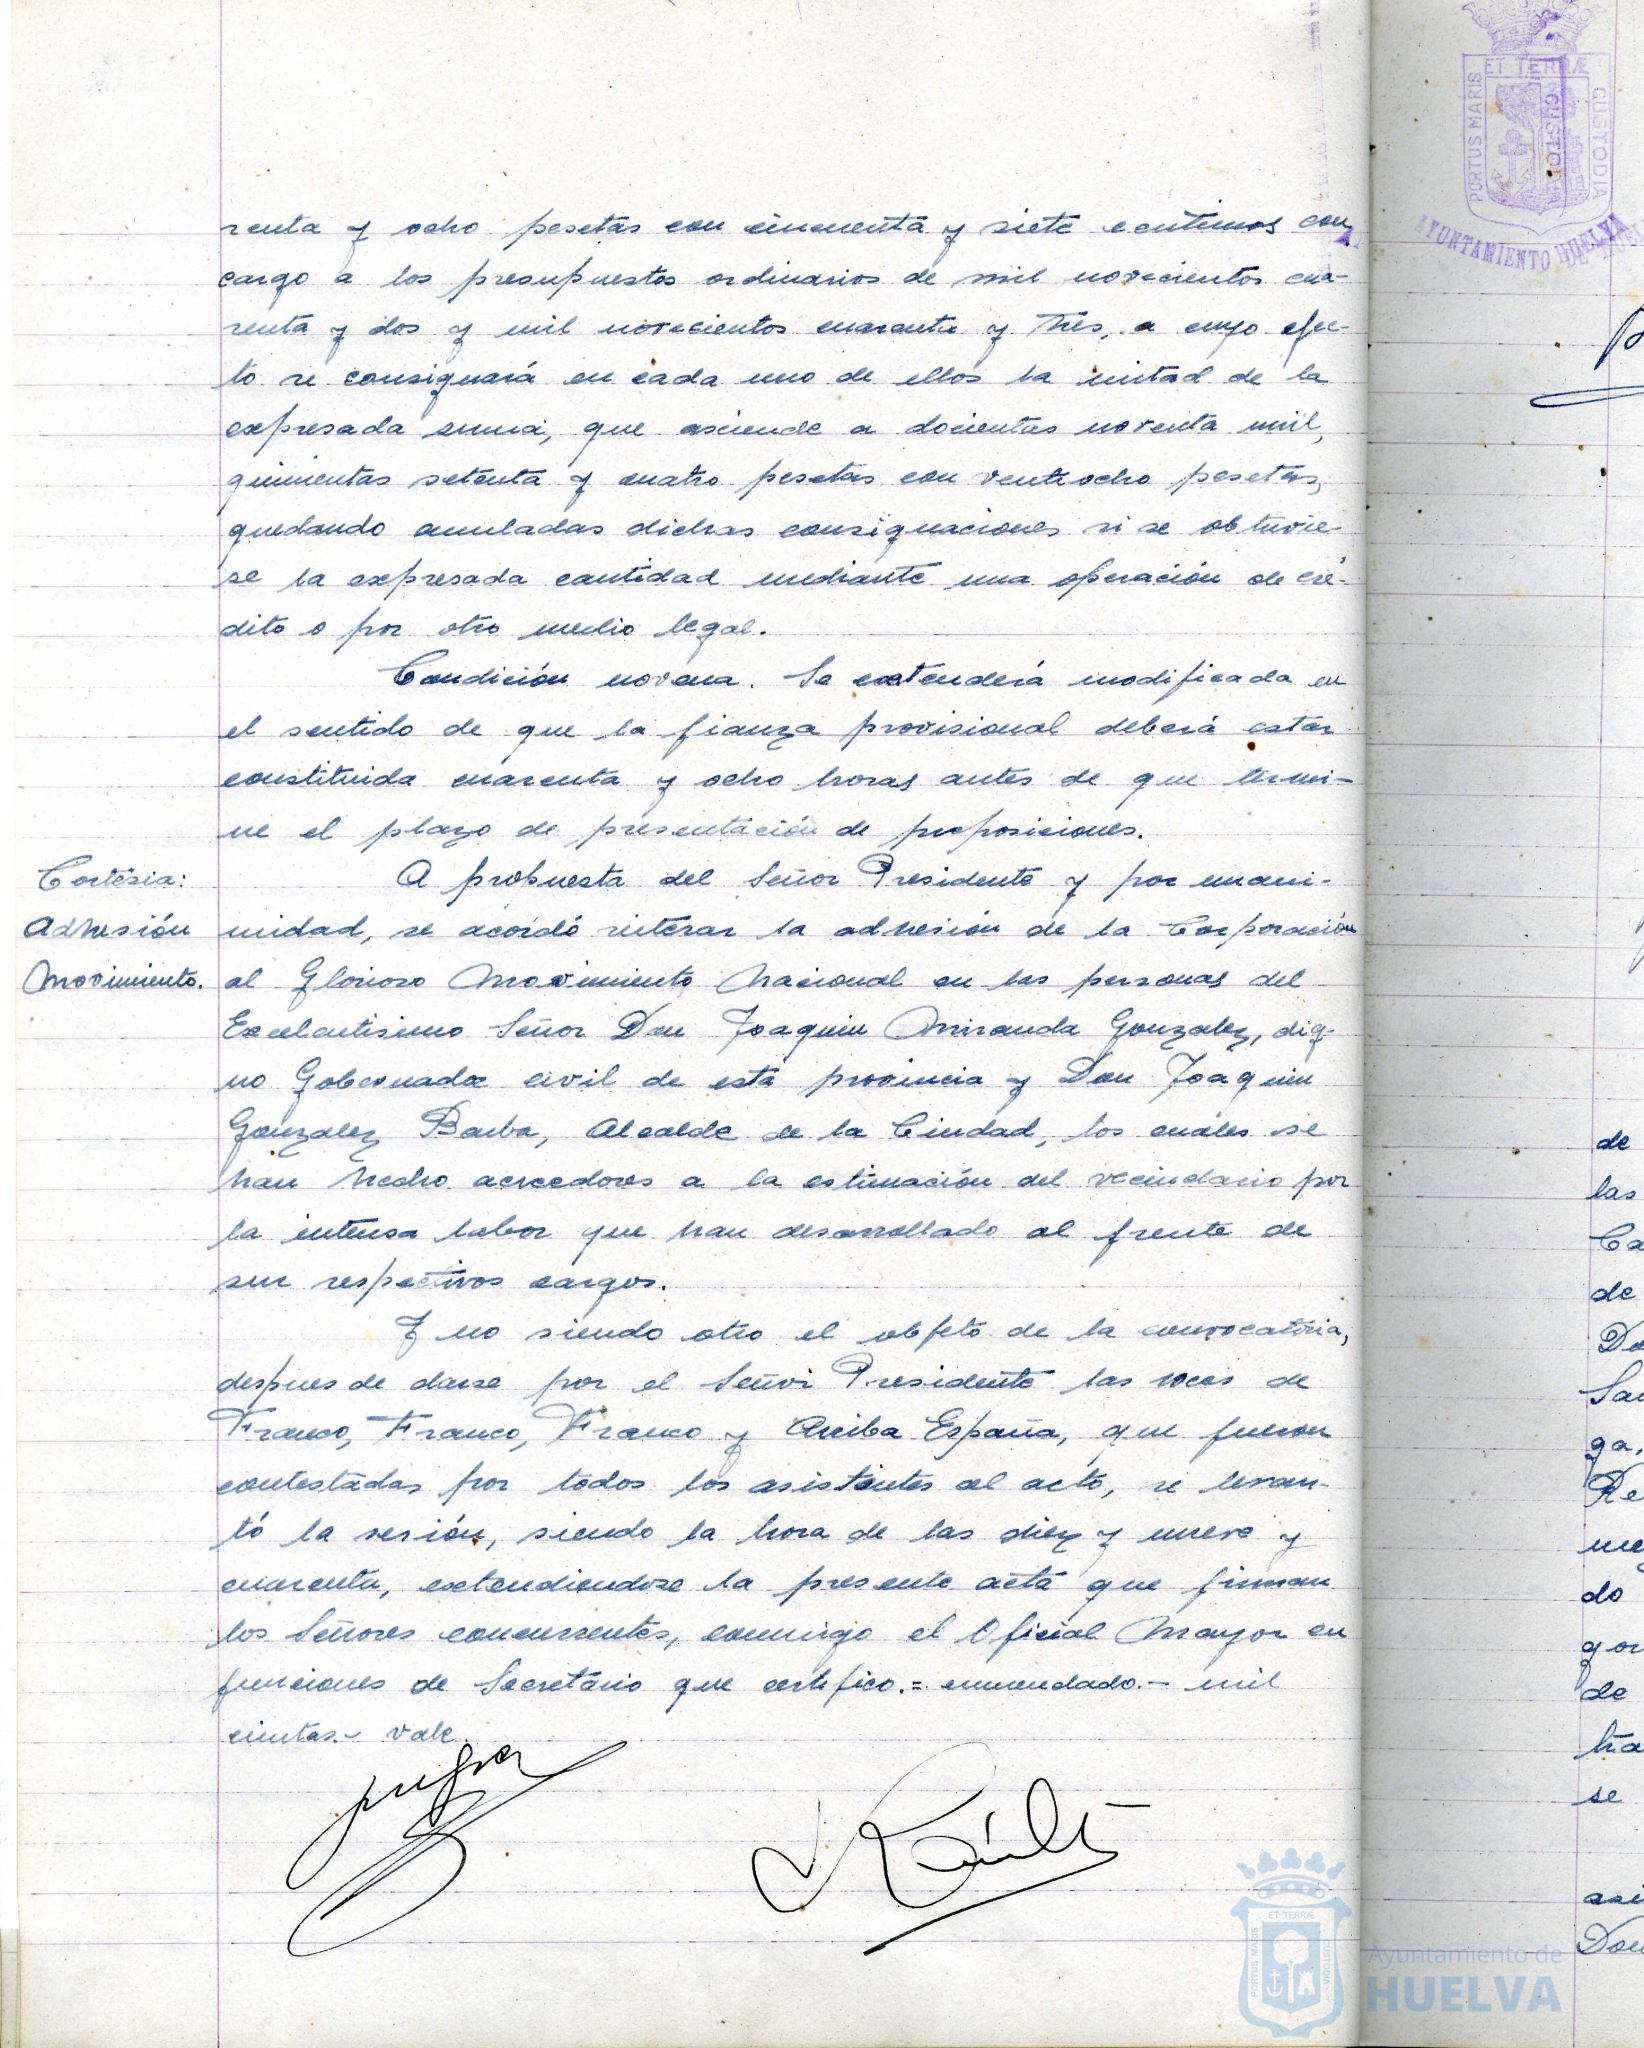 renta y ocho pesetas con cincuenta y siete centimos con
cargo a los presupuestos ordinarios de mil novecientos cua-
renta y dos y mil novecientos cuarenta y tres, a cuyo efec-
to se consignará en cada uno de ellos la mitad de la
expresada suma, que asciende a docientas noventa mil,
quinientas setenta y cuatro pesetas con ventiocho pesetas,
quedando anuladas dichas consignaciones si se obtuvie-
se la expresada cantidad mediante una operación de cré-
dito o por otro medio legal.
Condición novena. Se extenderá modificada en
el sentido de que la fianza provisional deberá estar
constituida cuarenta y ocho horas antes de que termi-
ne el plazo de presentación de proposiciones.
Cortésia:
Adhesión
Movimiento.
A propuesta del Señor Presidente y por unani-
midad, se acordó reiterar la adhesión de la Corporación
al Glorioso Movimiento Nacional en las personas del
Excelentisimo Señor Don Joaquin Miranda Gonzalez, dig-
no Gobernador civil de esta provincia y Don Joaquin
Gonzalez Barba, Alcalde de la Ciudad, los cuáles se
han hecho acreedores a la estimación del vecindario por
la intensa labor que han desarrollado al frente de
sus respectivos cargos.
Y no siendo otro el objeto de la convocatoria,
despues de darse por el Señor Presidente las voces de
Franco, Franco, Franco y Arriba España, que fueron
contestadas por todos los asistentes al acto, se levan-
tó la sesión, siendo la hora de las diez y nueve y
cuarenta, extendiendose la presente acta que firman
los Señores concurrentes, conmigo el Oficial Mayor en
funciones de Secretario que certifico.= enmendado.- mil
cientas.- vale.
PORTUS MARIS ET TERRÆ CUSTODIA
AYUNTAMIENTO HUELVA
de
las
Ca
de
Do
San
ga,
Re
me
do
gor
de
tra
se
asi
Don
PORTUS MARIS ET TERRÆ CUSTODIA
Ayuntamiento de
HUELVA